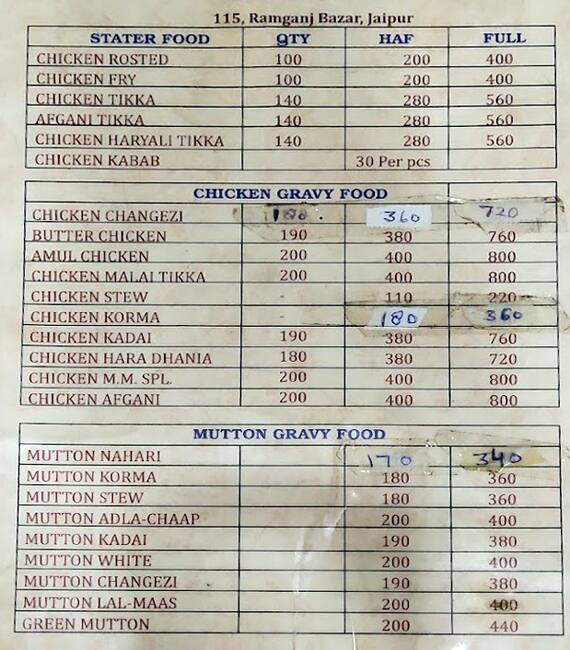 115, Ramganj Bazar, Jaipur
STATER FOOD QTY HAF FULL
CHICKEN ROSTED 100 200 400
CHICKEN FRY 100 200 400
CHICKEN TIKKA 140 280 560
AFGANI TIKKA 140 280 560
CHICKEN HARYALI TIKKA 140 280 560
CHICKEN KABAB 30 Per pcs
CHICKEN GRAVY FOOD
CHICKEN CHANGEZI 180 360 720
BUTTER CHICKEN 190 380 760
AMUL CHICKEN 200 400 800
CHICKEN MALAI TIKKA 200 400 800
CHICKEN STEW - 110 220
CHICKEN KORMA - 180 360
CHICKEN KADAI 190 380 760
CHICKEN HARA DHANIA 180 380 720
CHICKEN M.M. SPL. 200 400 800
CHICKEN AFGANI 200 400 800
MUTTON GRAVY FOOD
MUTTON NAHARI 170 340
MUTTON KORMA 180 360
MUTTON STEW 180 360
MUTTON ADLA-CHAAP 200 400
MUTTON KADAI 190 380
MUTTON WHITE 200 400
MUTTON CHANGEZI 190 380
MUTTON LAL-MAAS 200 400
GREEN MUTTON 200 440